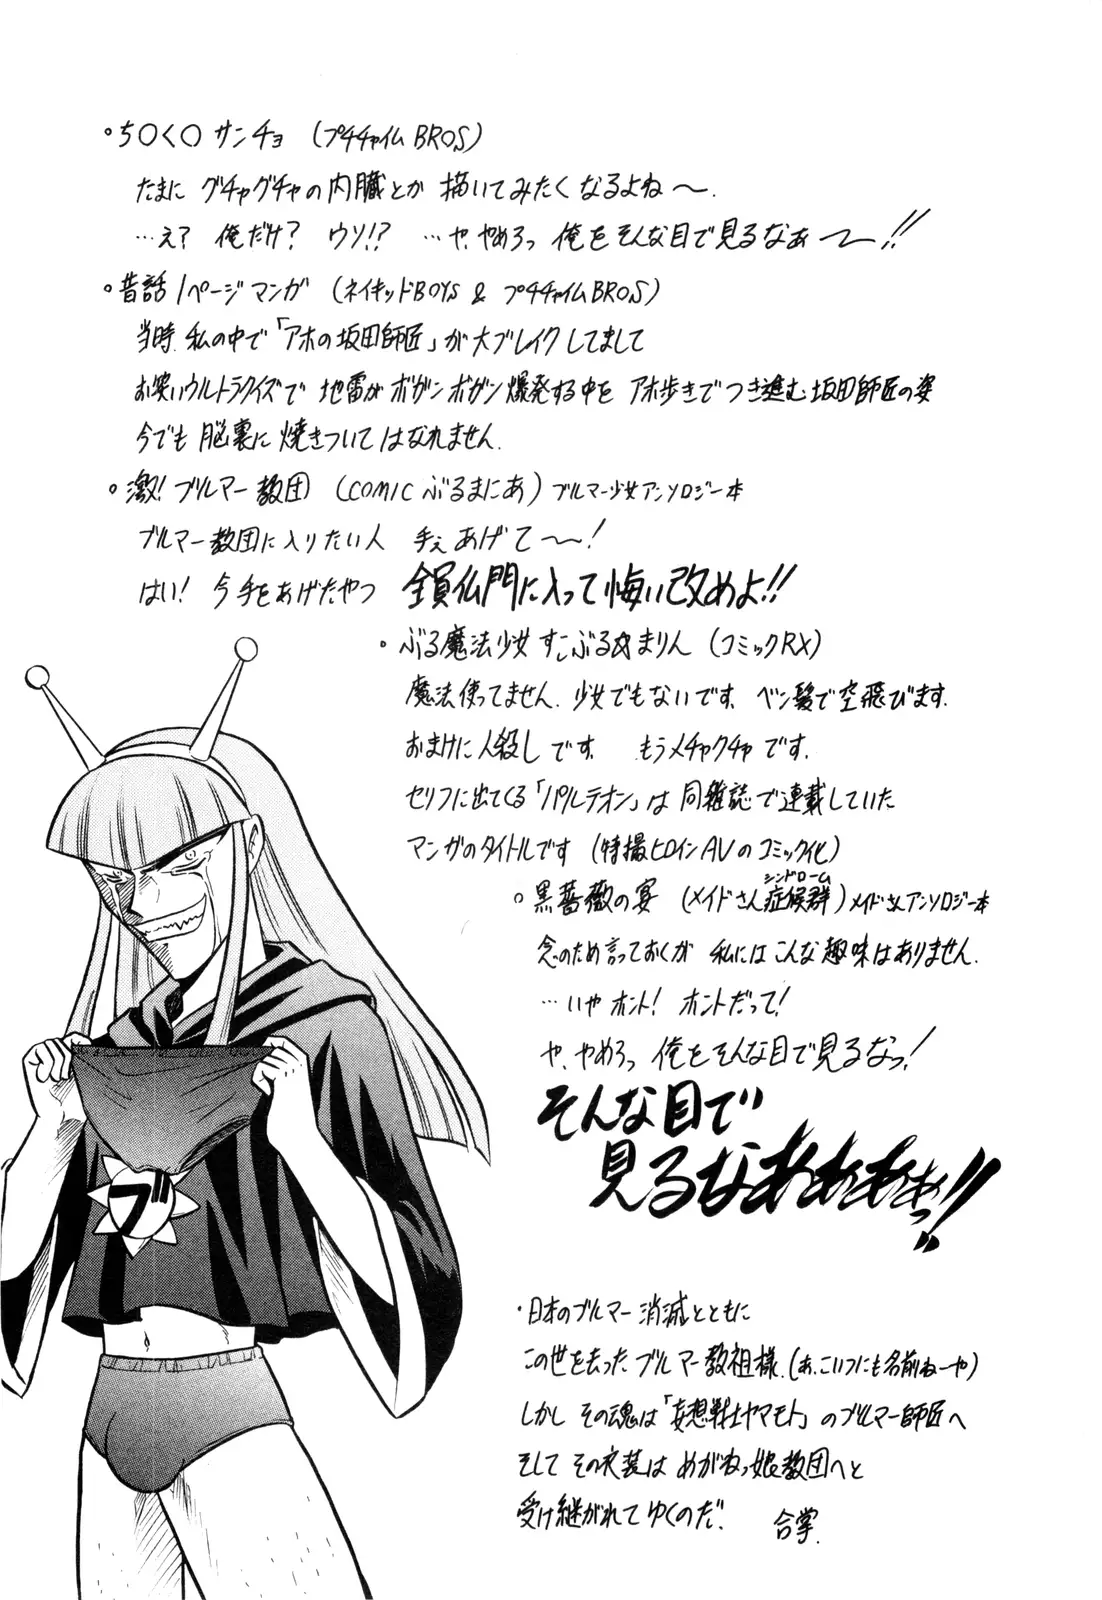 ◦ち○く○サンチョ (プチチャイムBROS)
たまに グチャグチャの内臓とか 描いてみたくなるよね〜.
…え? 俺だけ? ウソ!? …や、やめろっ 俺をそんな目で見るなぁ〜!!
◦昔話1ページマンガ (ネイキッドBOYS & プチチャイムBROS)
当時 私の中で「アホの坂田師匠」が大ブレイクしてまして
お笑いウルトラクイズで 地雷がボガンボガン爆発する中を アホ歩きでつき進む坂田師匠の姿
今でも 脳裏に 焼きついて はなれません.
◦激!ブルマー教団 (COMIC ぶるまにあ) ブルマー少女アンソロジー本
ブルマー教団に入りたい人 手ぇあげて〜!
はい! 今手をあげたやつ 全員仏門に入って悔い改めよ!!
◦ぶる魔法少女 すこぶる☆まりん (コミックRX)
魔法使ってません. 少女でもないです. ベン髪で空飛びます.
おまけに人殺しです. もうメチャクチャです.
セリフに出てくる「パルテオン」は同雑誌で連載していた
マンガのタイトルです (特撮ヒロインAVのコミック化)
シンドローム
◦黒薔薇の宴 (メイドさん症候群) メイドさんアンソロジー本
念のため言っておくが 私にはこんな趣味はありません.
…いやホント! ホントだって!
や、やめろっ 俺をそんな目で見るなっ!
そんな目で
見るなあああぁぁっ!!
ブ
・日本のブルマー消滅とともに
この世を去ったブルマー教祖様.(あ、こいつにも名前ねーや)
しかし その魂は「妄想戦士ヤマモト」のブルマー師匠へ
そして その衣装は めがねっ娘教団へと
受け継がれてゆくのだ. 合掌.